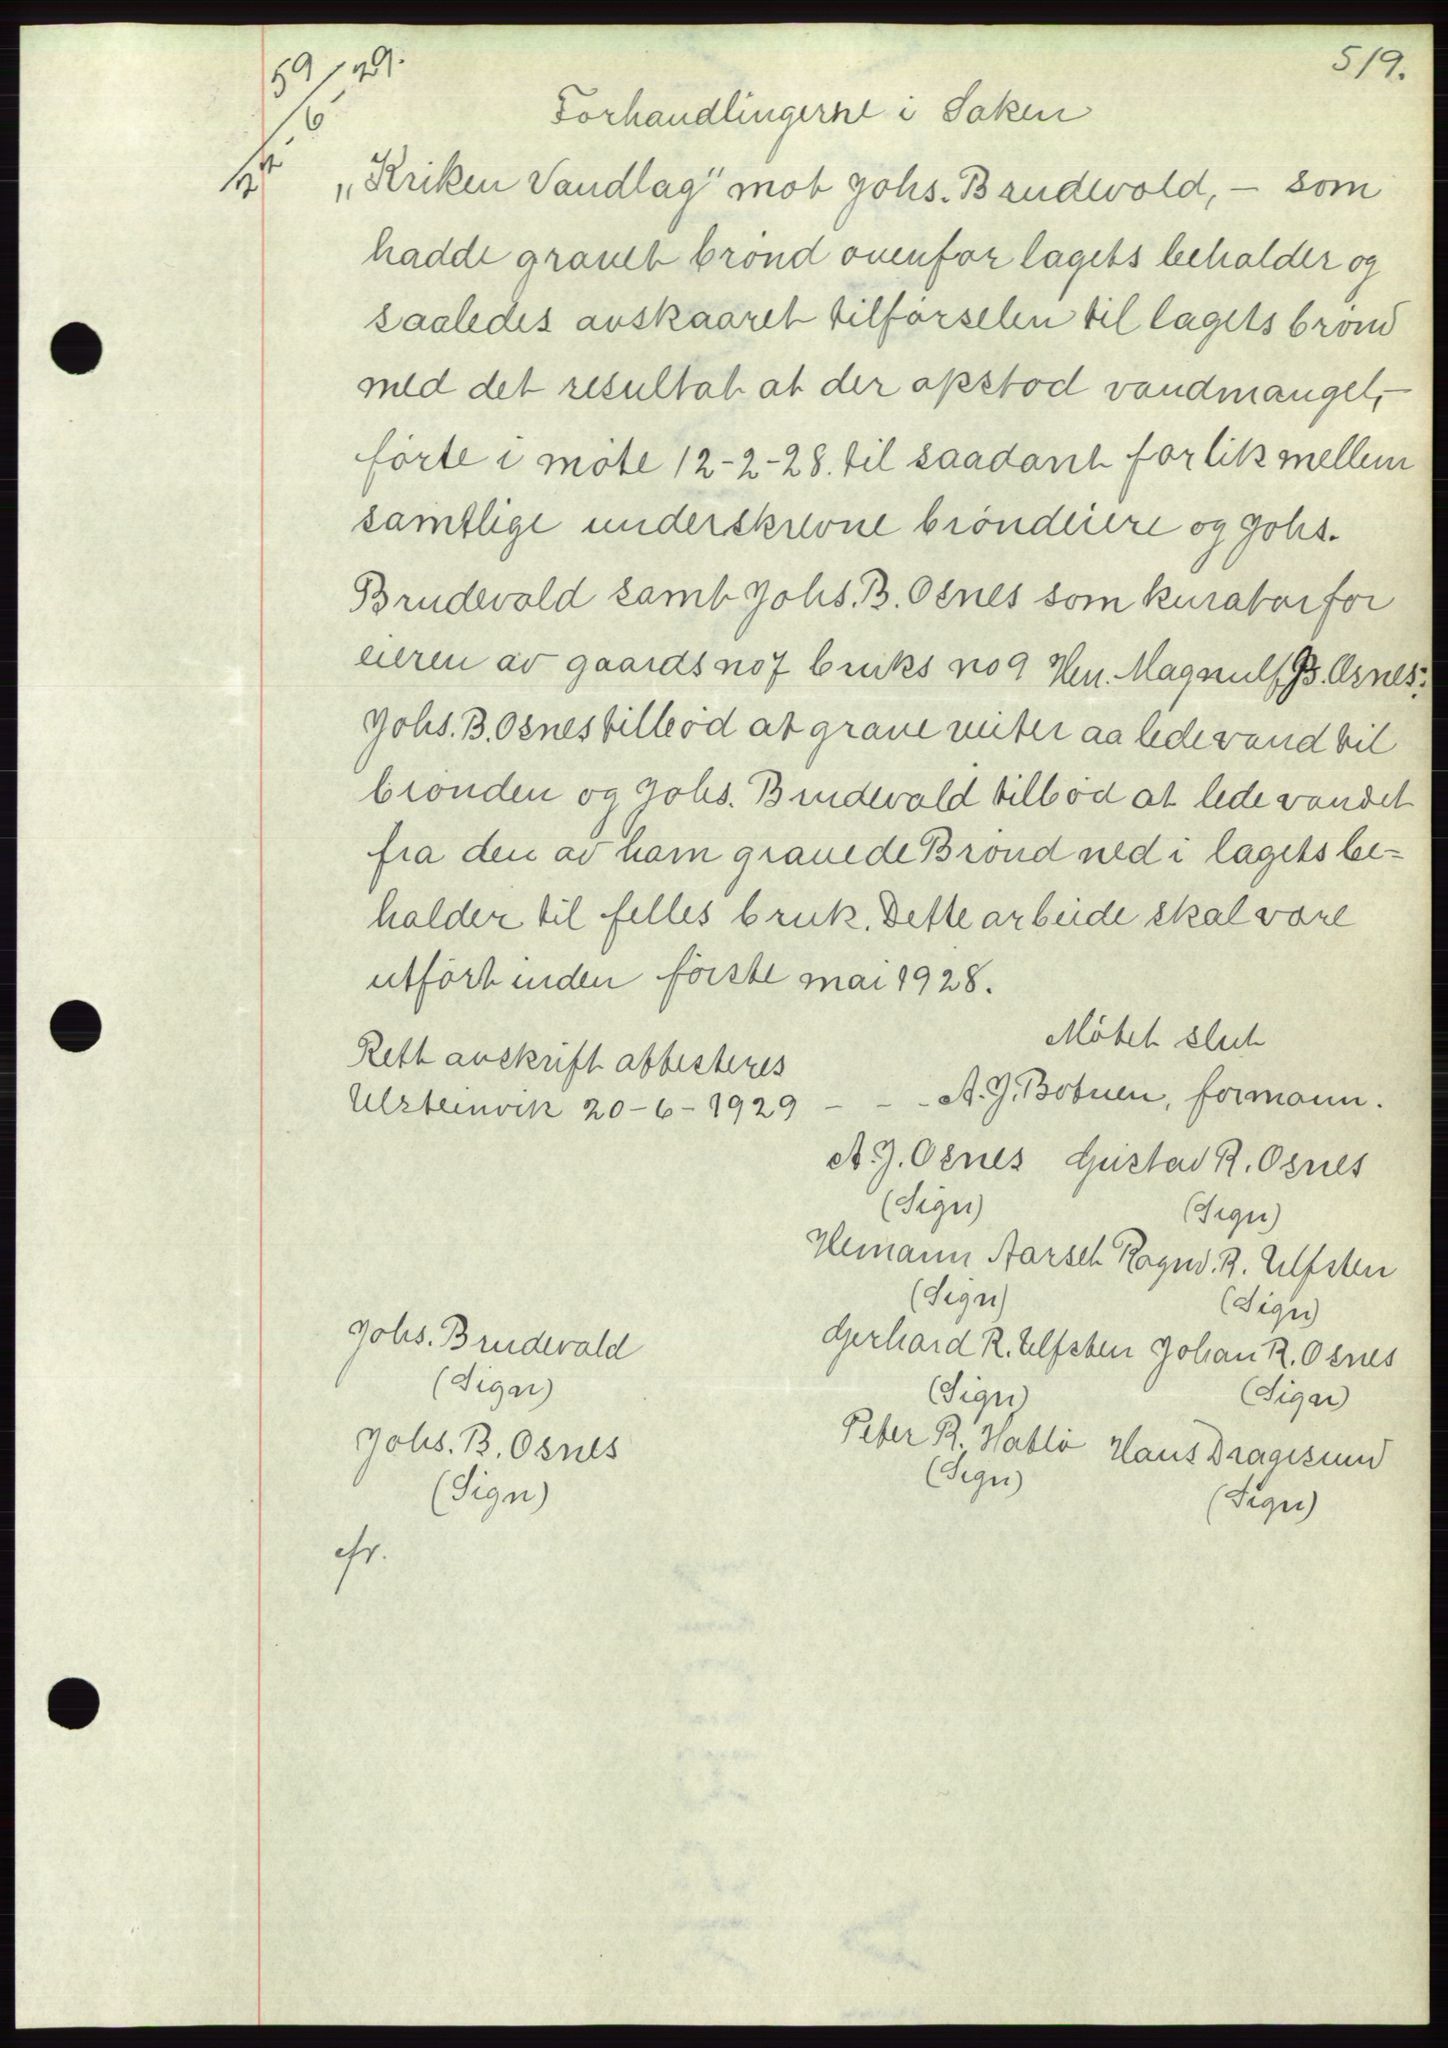 519.
59
22/6 - 29.
Forhandlingerne i Saken
„Kriken Vandlag" mot Johs. Brudevold, - som
hadde gravet brønd ovenfor lagets beholder og
saaledes avskaaret tilførselen til lagets brønd
med det resultat at der opstod vandmangel, -
førte i møte 12-2-28. til saadant forlik mellem
samtlige underskrevne brøndeiere og Johs.
Brudevold samt Johs. B. Osnes som kurator for
eieren av gaards no 7 bruks no 9 Hr. Magnulf B. Osnes:
Johs. B. Osnes tilbød at grave veiter aa lede vand til
brønden og Johs. Brudevold tilbød at lede vandet
fra den av ham gravede Brønd ned i lagets be=
holder til felles bruk. Dette arbeide skal være
utført inden første mai 1928.
Møtet slut
Rett avskrift attesteres
Ulsteinvik 20-6-1929 - - - A. J. Botnen, formann.
A. J. Osnes Gustav R. Osnes
(Sign) (Sign)
Hermann Aarseth Ragnv. R. Ulfsten
(Sign) (Sign)
Johs. Brudevold Gerhard R. Ulfsten Johan R. Osnes
(Sign) (Sign) (Sign)
Johs. B. Osnes Peter R. Hatlø Hans Dragesund
(Sign) (Sign) (Sign)